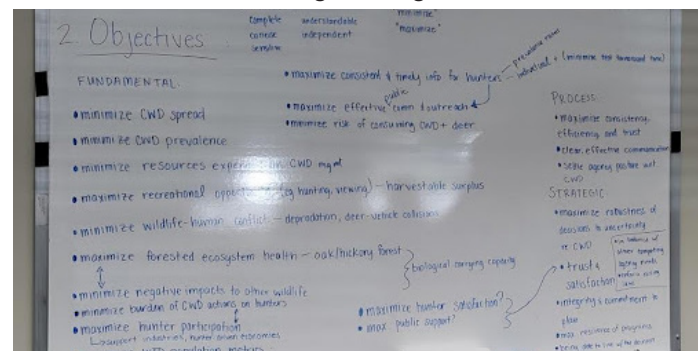 complete understandable "minimize"
concise independent "maximize"
sensitive
2. Objectives
FUNDAMENTAL:
• minimize CWD spread
• minimize CWD prevalence
• minimize resources on CWD mgmt
• maximize recreational (eg hunting, viewing) – harvestable surplus
• minimize wildlife-human conflict – depredation, deer-vehicle collisions
• maximize forested ecosystem health – oak/hickory forest
biological carrying capacity
• minimize negative impacts to other wildlife
• minimize burden of CWD actions on hunters
• maximize hunter participation
support industries,
• maximize consistent & timely info for hunters
prevalence rates
individual + (minimize test turnaround time)
public
• maximize effective comm & outreach
• minimize risk of consuming CWD+ deer
• maximize hunter satisfaction?
• max. public support?
PROCESS:
• maximize consistency,
efficiency and trust
• clear, effective communication
CWD
STRATEGIC
• maximize robustness of
decisions to uncertainty
re CWD
• trust &
satisfaction
• integrity & commitment to
plan
• max. resilience of programs